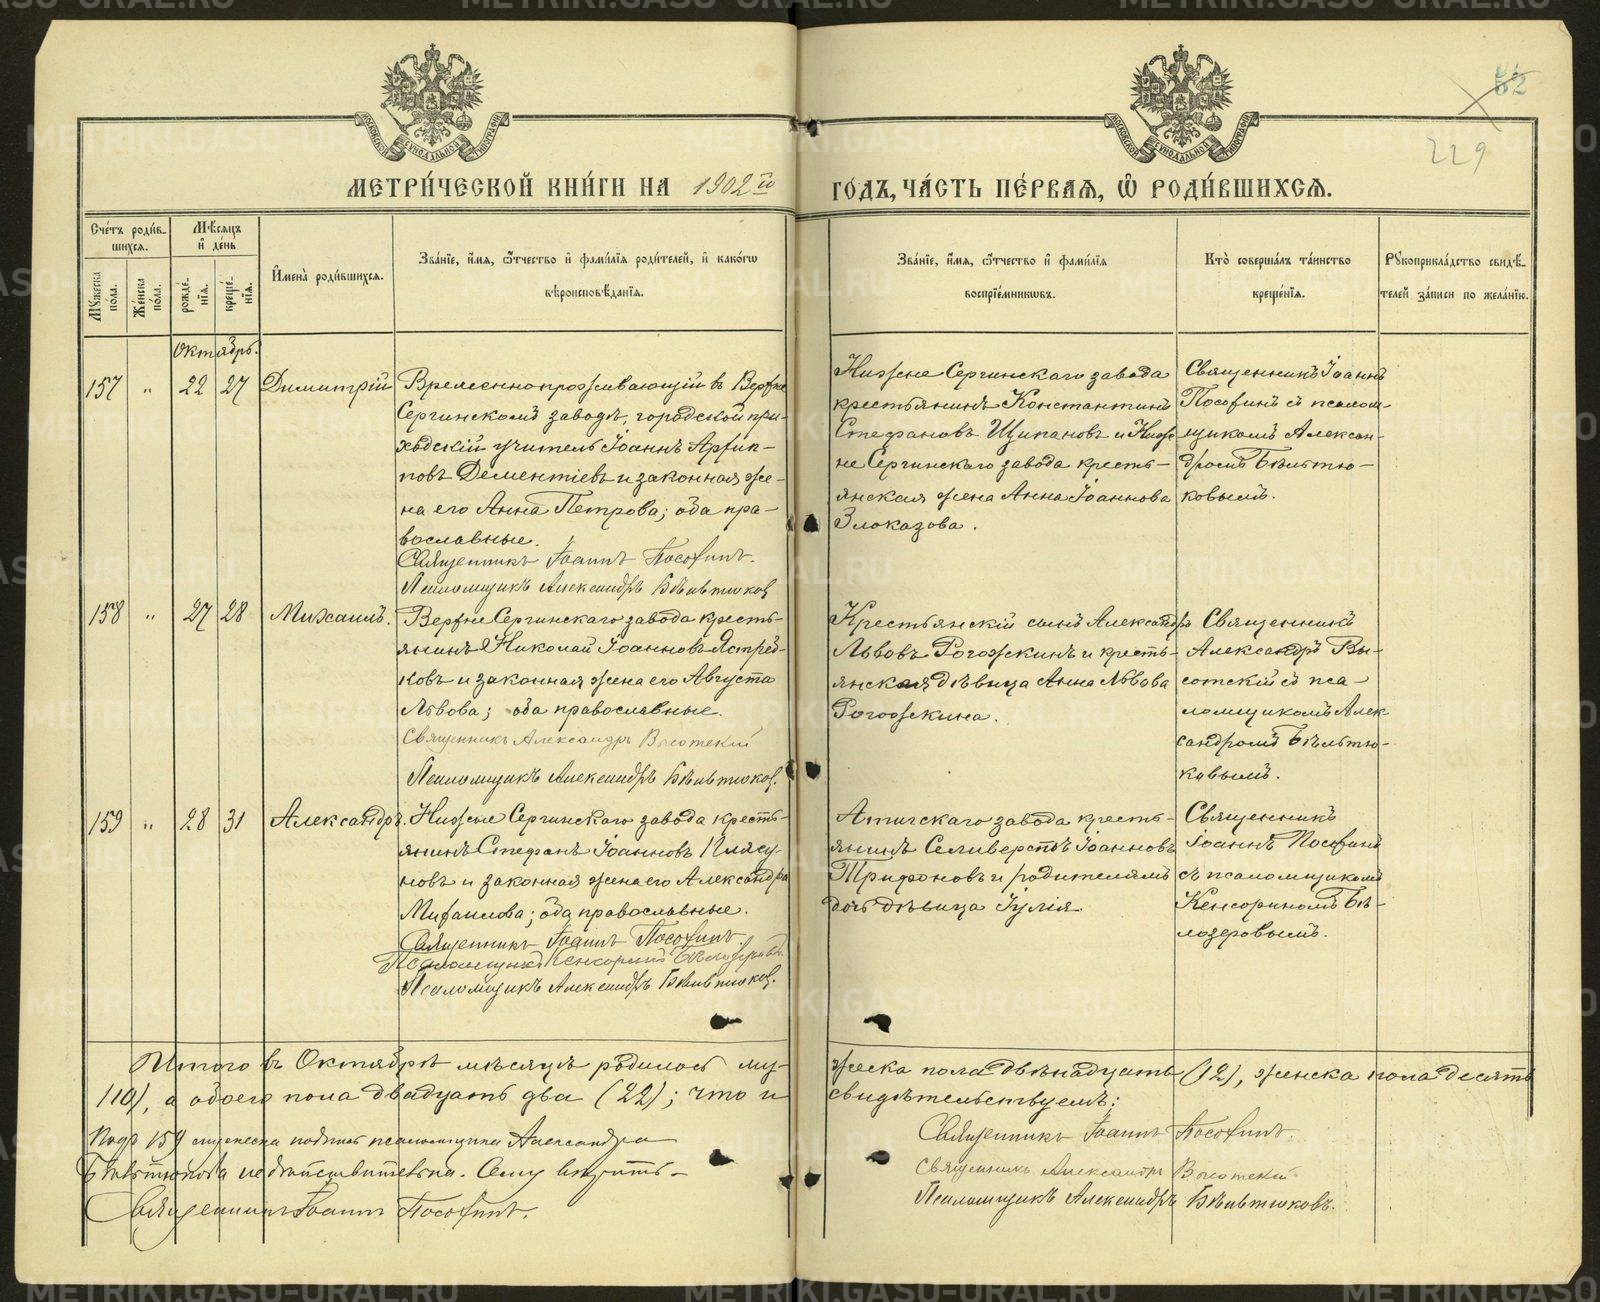 МЕТРИ́ЧЕСКОЙ КНИ́ГИ НА 1902й
ГО́ДЪ, ЧА́СТЬ ПЕ́РВАЯ, Ѽ РОДИ́ВШИХСЯ.
229
МОСКОВСКОЙ СѴНОДАЛЬНОЙ ТИПОГРАФІИ
МОСКОВСКОЙ СѴНОДАЛЬНОЙ ТИПОГРАФІИ
Сче́тъ роди́в-
шихся.
Му́жеска по́ла.
Же́нска по́ла.
Мѣ́сяцъ
и҆ де́нь
рожде́-
нія.
креще́-
нія.
И҆мена̀ роди́вшихся.
Зва́ніе, и҆́мя, ѻ҆́тчество и҆ фами́лія роди́телей, и҆ како́гѡ
вѣроисповѣ́данія.
Зва́ніе, и҆́мя, ѻ҆́тчество и҆ фами́лія
воспріе́мниковъ.
Кто̀ соверша́лъ та́инство
креще́нія.
Рꙋкоприкла́дство свидѣ́-
телей за́писи по жела́нію.
Октябрь.
157 „ 22 27 Димитрій
Временнопроживающій въ Верхне
Сергинскомъ заводѣ, городской при-
ходскій учитель Іоаннъ Архип-
повъ Дементіевъ и законная же-
на его Анна Петрова; оба пра-
вославные.
Священникъ Іоаннъ Посохинъ.
Псаломщикъ Александръ Бѣльтюков
Нижне Сергинскаго завода
крестьянинъ Константинъ
Стефановъ Щипановъ и Ниж-
не Сергинскаго завода кресть-
янская жена Анна Іоаннова
Злоказова.
Священникъ Іоаннъ
Посохинъ съ псалом-
щикомъ Алексан-
дромъ Бѣльтю-
ковымъ.
158 „ 27 28 Михаилъ.
Верхне Сергинскаго завода кресть-
янинъ Николай Іоанновъ Ястреб-
ковъ и законная жена его Августа
Львова; оба православные.
Священникъ Александръ Высотскій
Псаломщикъ Александръ Бѣльтюков.
Крестьянскій сынъ Александръ
Львовъ Рогожкинъ и кресть-
янская дѣвица Анна Львова
Рогожкина.
Священникъ
Александръ Вы-
сотскій съ пса-
ломщикомъ Алек-
сандромъ Бѣльтю-
ковымъ.
159 „ 28 31 Александръ.
Нижне Сергинскаго завода кресть-
янинъ Стефанъ Іоанновъ Плясу-
новъ и законная жена его Александра
Михаилова; оба православные.
Священникъ Іоаннъ Посохинъ.
Псаломщикъ Кенсоринъ Бѣлозеровъ.
Псаломщикъ Александръ Бѣльтюков.
Атигскаго завода кресть-
янинъ Селиверстъ Іоанновъ
Трифоновъ и родителямъ
дочь дѣвица Іулія
Священникъ
Іоаннъ Посохинъ
съ псаломщикомъ
Кенсориномъ Бѣ-
лозеровымъ.
Итого въ Октябрѣ мѣсяцѣ родилось му-
жеска пола двѣнадцать (12), женска пола десять
(10), а обоего пола двадцать два (22); что и
свидѣтельствуемъ:
Подъ 159 мужеска подпись псаломщика Александра
Бѣльтюкова недѣйствительна. Сему вѣрить-
Священникъ Іоаннъ Посохинъ.
Священникъ Іоаннъ Посохинъ.
Священникъ Александръ Высотскій
Псаломщикъ Александръ Бѣльтюковъ.
METRIKI.GASO-URAL.RU